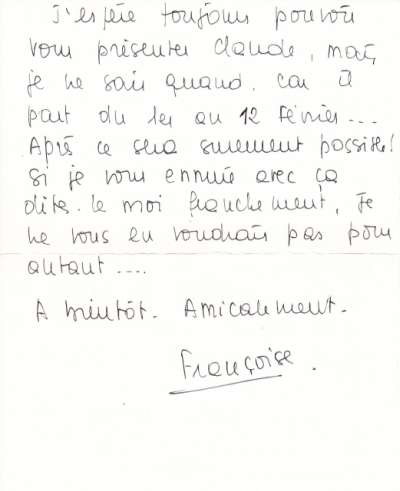 J'espère toujours pouvoir
vous présenter Claude, mais
je ne sais quand. car il
part du 1er au 12 Février...
Après ce sera surement possible!
si je vous ennuie avec ça
dites-le moi franchement, Je
ne vous en voudrais pas pour
autant....
A bientôt. Amicalement.
Françoise.